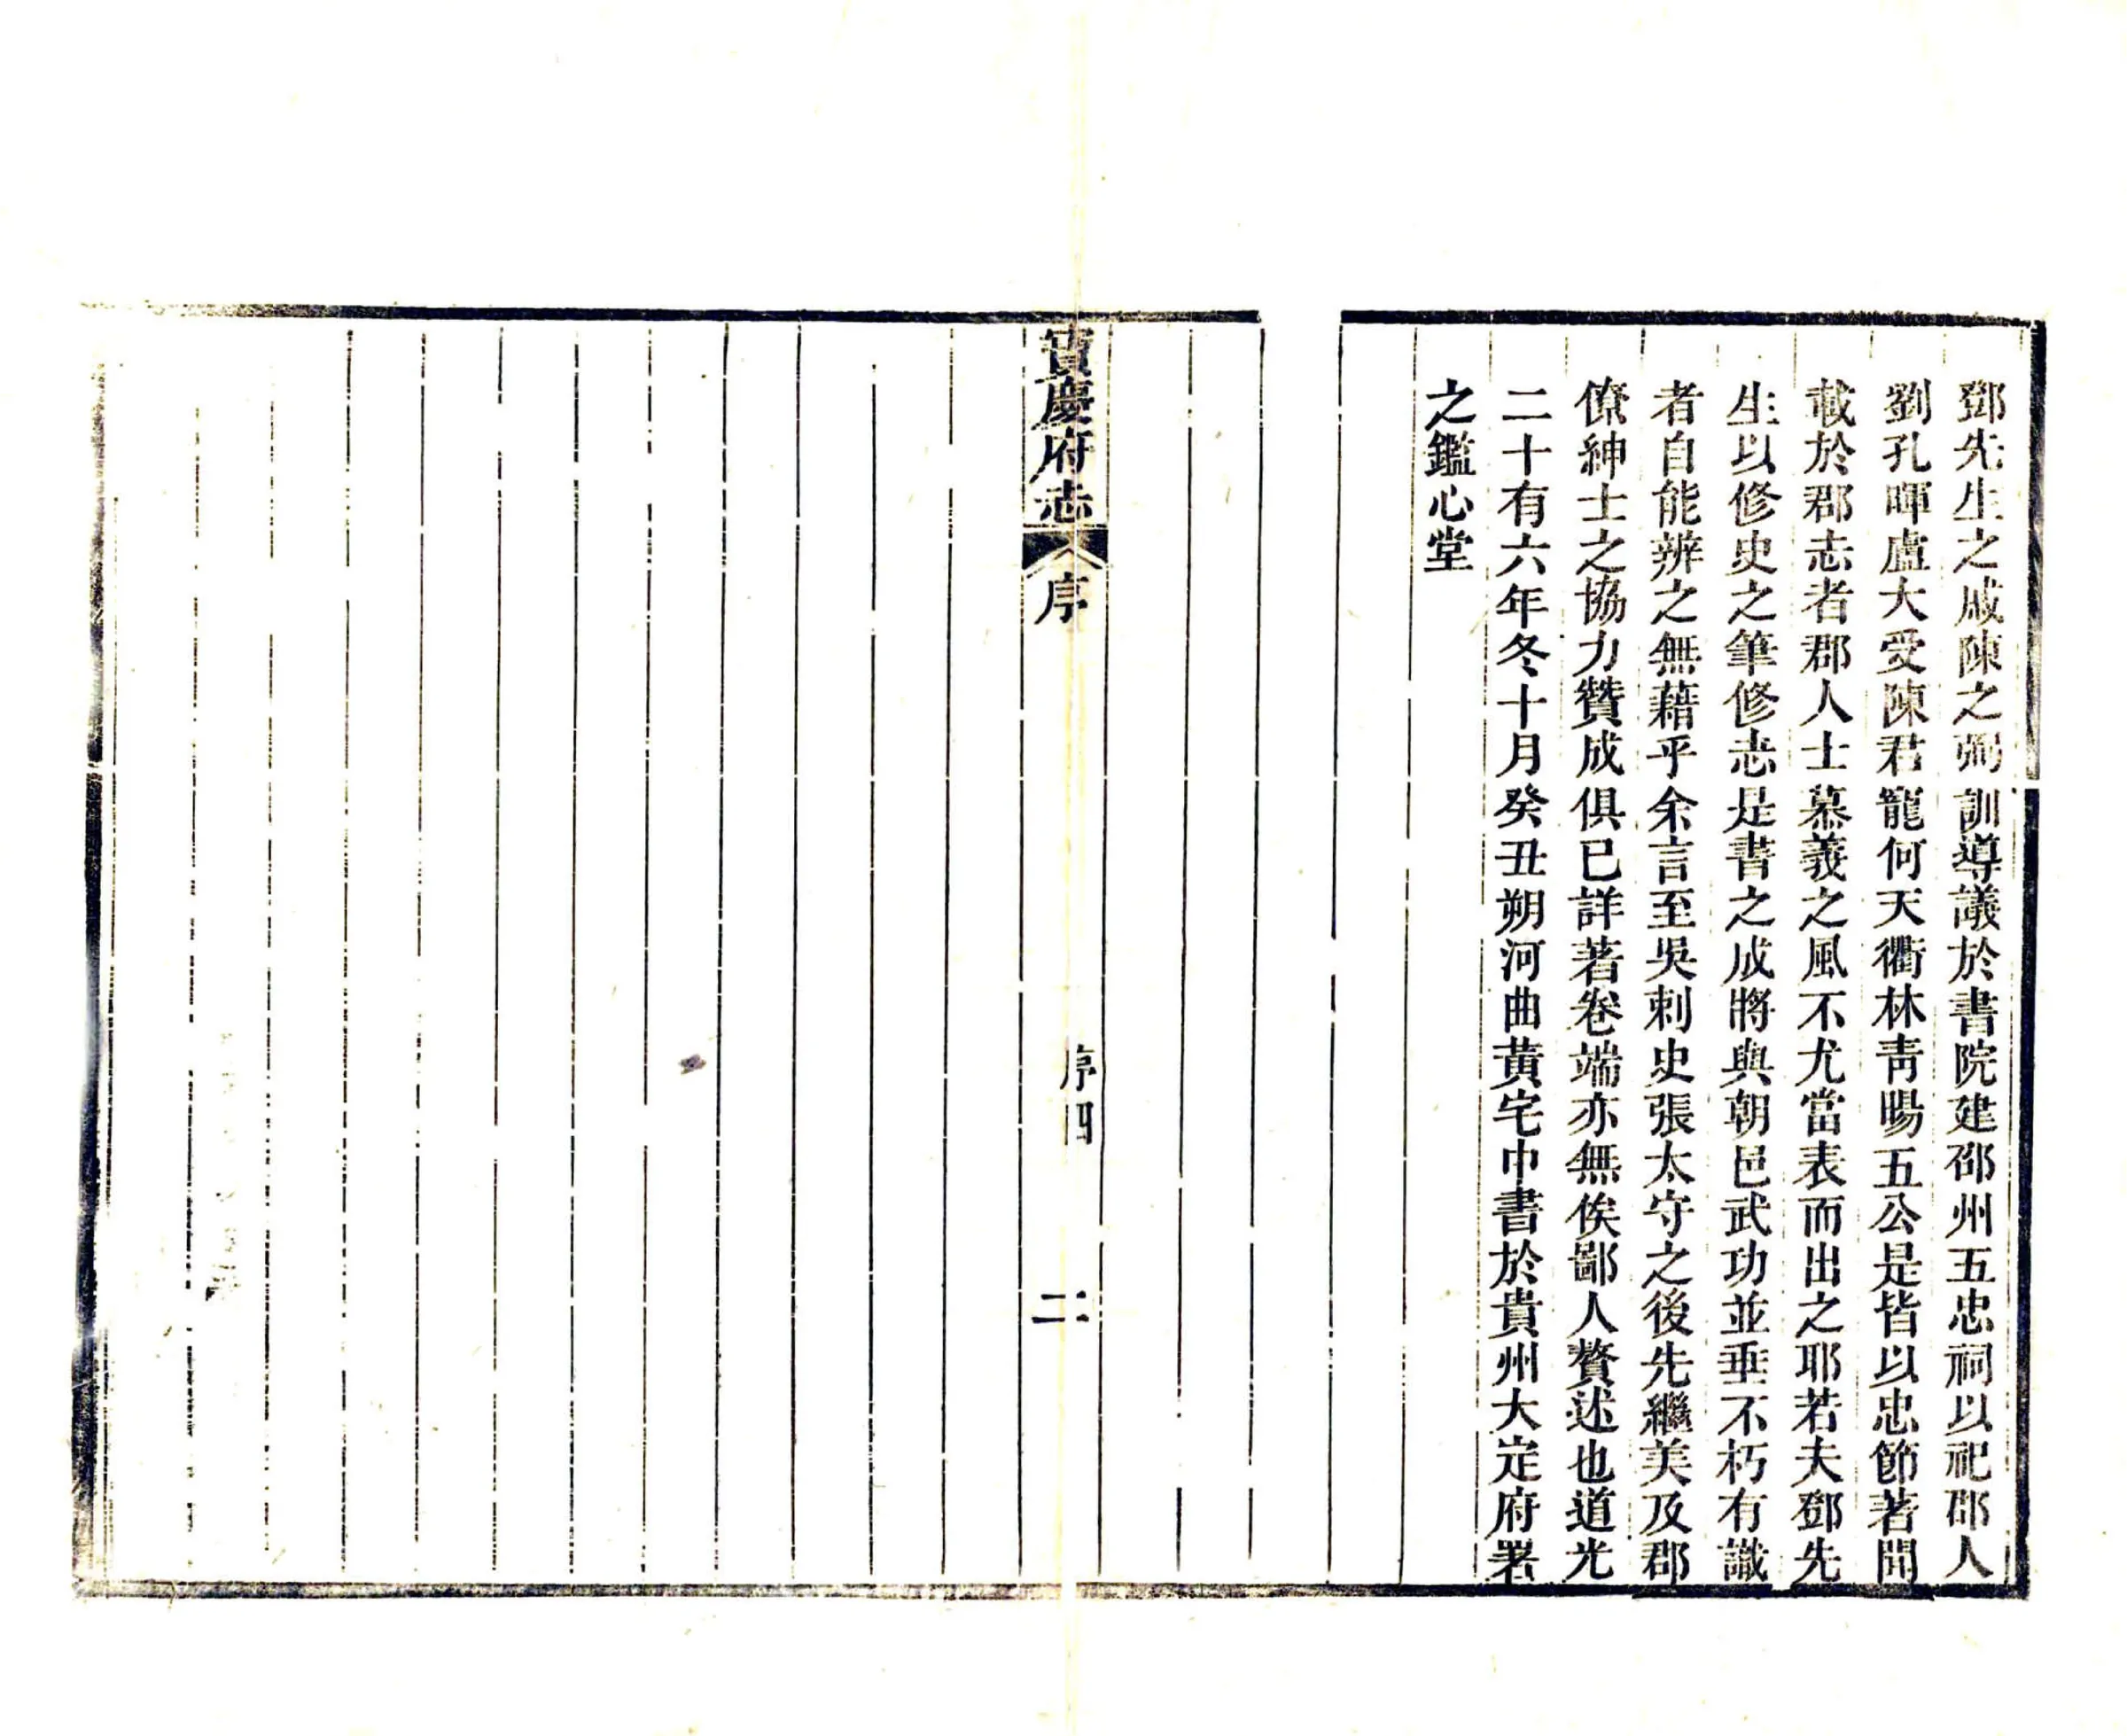 鄧先生之戚陳之弼訓導議於書院建邵州五忠祠以祀邵人
劉孔暉盧大受陳君寵何天衢林靑暘五公是皆以忠節著聞
載於郡志者郡人士慕義之風不尤當表而出之耶若夫鄧先
生以修史之筆修志是書之成將與朝邑武功並垂不朽有識
者自能辨之無藉乎余言至吳刺史張太守之後先繼美及郡
僚紳士之協力贊成俱已詳著卷端亦無俟鄙人贅述也道光
二十有六年冬十月癸丑朔河曲黃宅中書於貴州大定府署
之鑑心堂
寶慶府志
序
序四
二